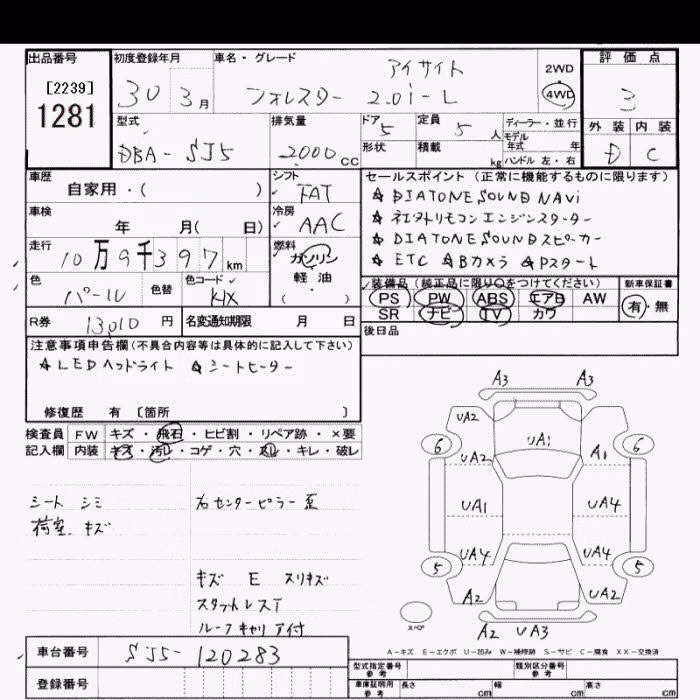 出品番号
[2239]
1281
初度登録年月
30 3月
車名・グレード
アイサイト
フォレスター 2.0i-L
2WD
4WD
評価点
3
型式
DBA-SJ5
排気量
2000cc
ドア 5
形状
定員 5人
積載 kg
ディーラー・並行
モデル年式 年
ハンドル 左・右
外装 内装
D C
車歴
自家用・( )
シフト
FAT
車検
年 月( 日)
冷房
AAC
走行
10万9千397km
燃料
ガソリン
軽油
( )
色
パール
色替
色コード
K1X
R券 13010円
名変通知期限 月 日
セールスポイント (正常に機能するものに限ります)
☆ DIATONE SOUND NAVi
☆ リモコンエンジンスターター
☆ DIATONE SOUND スピーカー
☆ ETC ☆Bカメラ ☆Pスタート
装備品(純正品に限り○をつけてください)
PS PW ABS エアB AW
SR ナビ TV カワ
新車保証書
有・無
後日品
注意事項申告欄(不具合内容等は具体的に記入して下さい)
☆LEDヘッドライト ☆シートヒーター
修復歴 有 〔箇所 〕
検査員記入欄
FW キズ・飛石・ヒビ割・リペア跡・×要
内装 キズ・汚レ・コゲ・穴・スレ・キレ・破レ
シート シミ
荷室 キズ
右センターピラー歪
キズ E スリキズ
スタットレスT
ルーフキャリア付
A3 A3
UA2
UA1
6 6
UA2 A1
UA1 UA4
UA4 UA4
5 5
A2 UA2
スペア
A2 UA3
A-キズ E-エクボ U-凹み W-補修跡 S-サビ C-腐食 XX-交換済
車台番号 SJ5-120283
登録番号
型式指定番号 参考
類別区分番号 参考
車庫証明用 参考
長さ cm 幅 cm 高さ cm